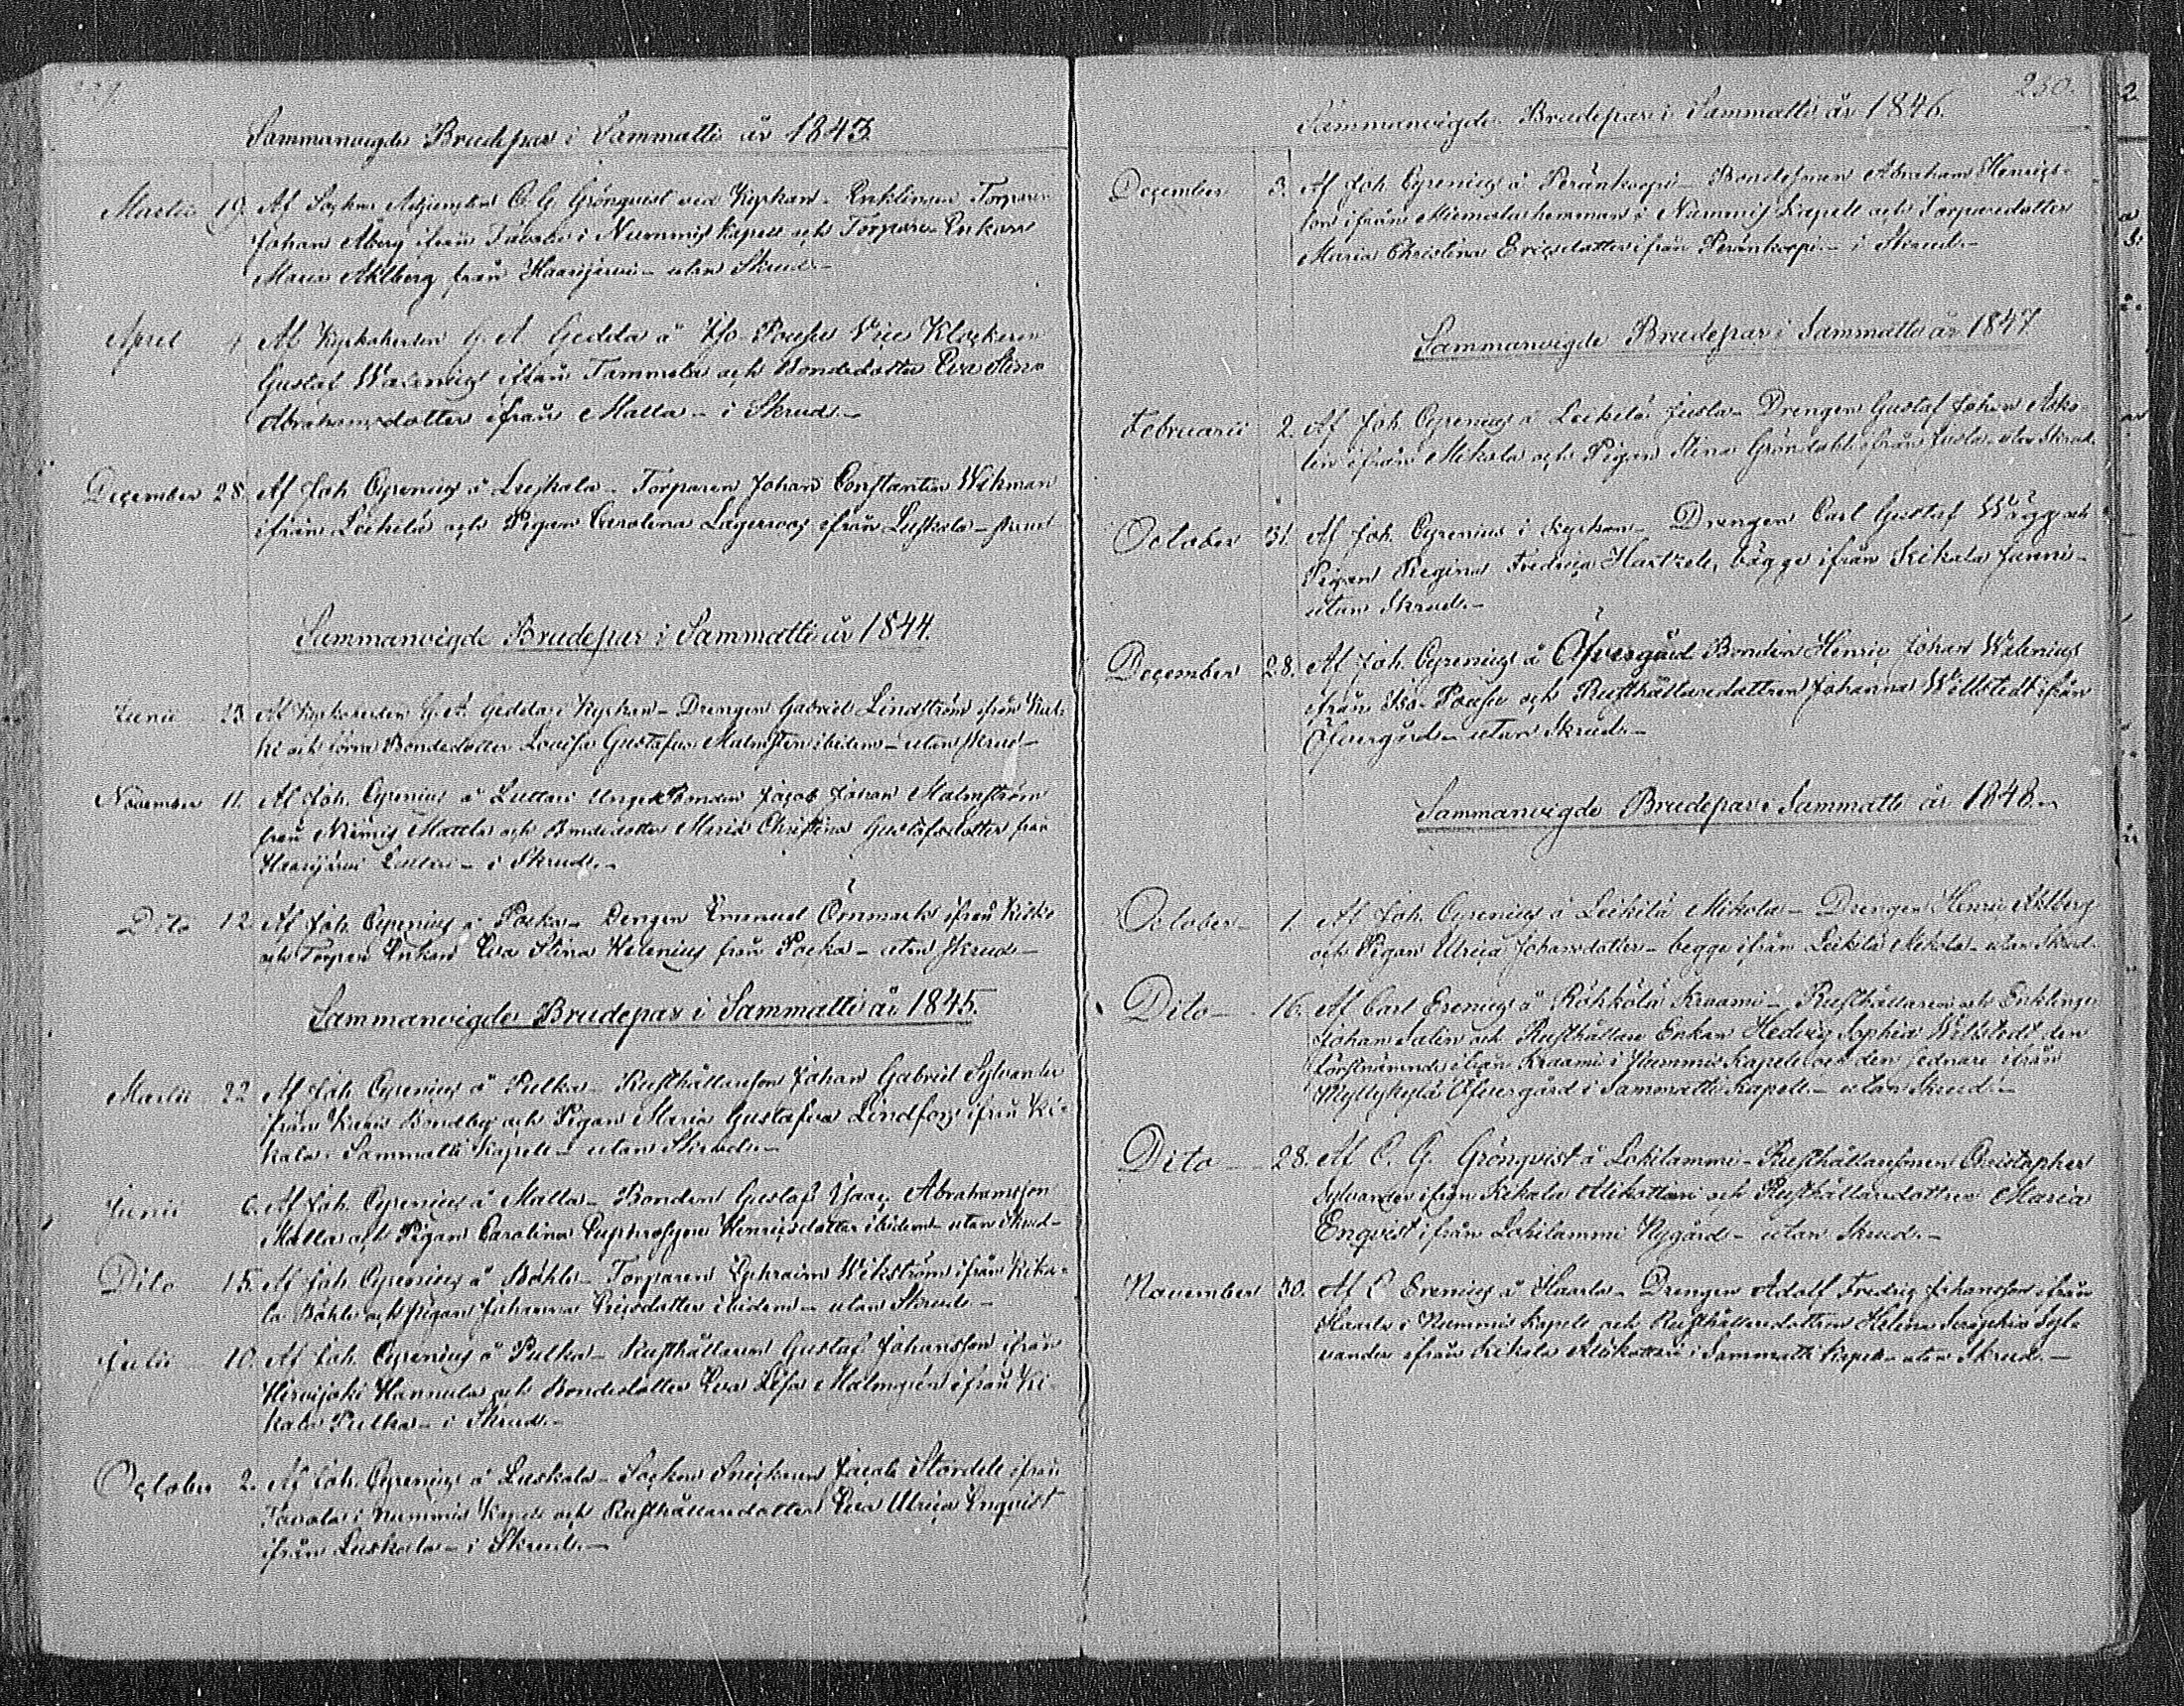 Sammanvigde Brudepar i Sammatti år 1843
Martii 19. Af Sockne Adjuncten C. G. Grönqvist vid Kyrkan - Enklingen Torparen
Johan Åberg ifrån Tavola i Nummis Kapell och Torpare Enkan
Maria Ahlberg från Haarijärvi - utan Skrud.-
April Af Kyrkoherden G. A. Gedda å Iso-Pousu Vice Klockaren
Gustaf Walenius ifrån Tammela och Bondedotter Eva Stina
Abrahamsdotter ifrån Malla - i Skrud.-
December 28. Af Joh. Cyrenius å Luskala - Torparen Johan Constantin Wikman
ifrån Leikilä och Pigan Carolina Lagerroos ifrån Luskala -
Sammanvigde Brudepar i Sammatti år 1844.
Junii 23. Af Kyrkoherden G. A. Gedda i Kyrkan - Drengen Gabriel Lindström ifrån
och Bondedotter Lovisa Gustafva Malmsten ibidem - utan Skrud -
November 11. Af Joh. Cyrenius å Luttari Unge Bonden Jacob Johan Malmström
från Niemis Mattla och Bondedotter Maria Christina Gustafsdotter från
Haarijärvi Luttari - i Skrud.-
Dito 12. Af Joh. Cyrenius å Pocka - Drengen Emanuel Önmark ifrån Kisko
och Torpare Enkan Eva Stina Helenius från Pocka - utan Skrud -
Sammanvigde Brudepar i Sammatti år 1845.
Martii 22. Af Joh. Cyrenius å Pulka - Rusthållareson Johan Gabriel Sylvander
ifrån Bondby och Pigan Maria Gustafva Lindfors ifrån Ki-
kala i Sammatti Kapell - utan Skrud.-
Junii 6. Af Joh. Cyrenius å Malla - Bonden Gustaf Isaac Abrahamsson
Malla och Pigan Carolina Euphrosyne Henricsdotter ibidem - utan Skrud -
Dito 15. Af Joh. Cyrenius å Böhle - Torparen Ephraim Wikström ifrån Kika-
la Böhle och Pigan Johanna Ericsdotter ibidem - utan Skrud -
Julii 10. Af Joh. Cyrenius å Pulka - Rusthållaren Gustaf Johansson ifrån
Hirvijoki Hannula och Bondedotter Eva Lisa Malmgrén ifrån Ki-
kala Pulka - i Skrud.-
October 2. Af Joh. Cyrenius å Luskala - Sockne Snickaren Jacob Stordell ifrån
Tavola i Nummis Kapell och Rusthållaredotter Eva Ulrica Enqvist
ifrån Luskala - i Skrud.-
250.
Sammanvigde Brudepar i Sammatti år 1846.
December 3. Af Joh. Cyrenius å Peränkorpi - Bondesonen Abraham Henrics-
son ifrån hemman i Nummis Kapell och Torparedotter
Maria Christina Ericsdotter ifrån Peränkorpi - i Skrud.-
Sammanvigde Brudepar i Sammatti år 1847
Februarii 2. Af Joh. Cyrenius å Leikilä Jusla - Drengen Gustaf Johan Asko-
lin ifrån Mikola och Pigan Stina Gröndahl ifrån Jusla - utan Skrud.
October 31. Af Joh. Cyrenius i Kyrkan - Drengen Carl Gustaf Wägg och
Pigan Regina Fredrica Hartzell, bägge ifrån Kikala Janni -
utan Skrud.-
December 28. Af Joh. Cyrenius å Öfvergård Bonden Henric Johan Walenius
ifrån Iso-Pousu och Rusthållaredottren Johanna Willstedt ifrån
Öfvergård - utan Skrud.-
Sammanvigde Brudepar i Sammatti år 1848.
October - 1. Af Joh. Cyrenius å Leikilä Mikola - Drengen Henric Ahlberg
och Pigan Ulrica Johansdotter - begge ifrån Leikilä Mikola - utan Skrud.
Dito - 16. Af Carl Erenius å Röhkölä Kraami - Rusthållaren och Enklingen
Johan Salin och Rusthållare Enkan Hedvig Sophia Willstedt den
förstnämnde ifrån Kraami i Nummis Kapell och den sednare ifrån
Myllykylä Öfvergård i Sammatti Kapell - utan Skrud.-
Dito - 28. Af C. G. Grönqvist å Lohilammi - Rusthållaresonen Christopher
Sylvander ifrån Kikala Alikottari och Rusthållaredottren Maria
Enqvist ifrån Lohilammi Nygård - utan Skrud.-
November 30. Af C Erenius å Haarla - Drengen Adolf Fredric Johansson ifrån
Haarla i Nummis Kapell och Rusthållaredottren Helena Seraphia Syl-
vander ifrån Kikala Alikottari i Sammatti Kapell - utan Skrud.-